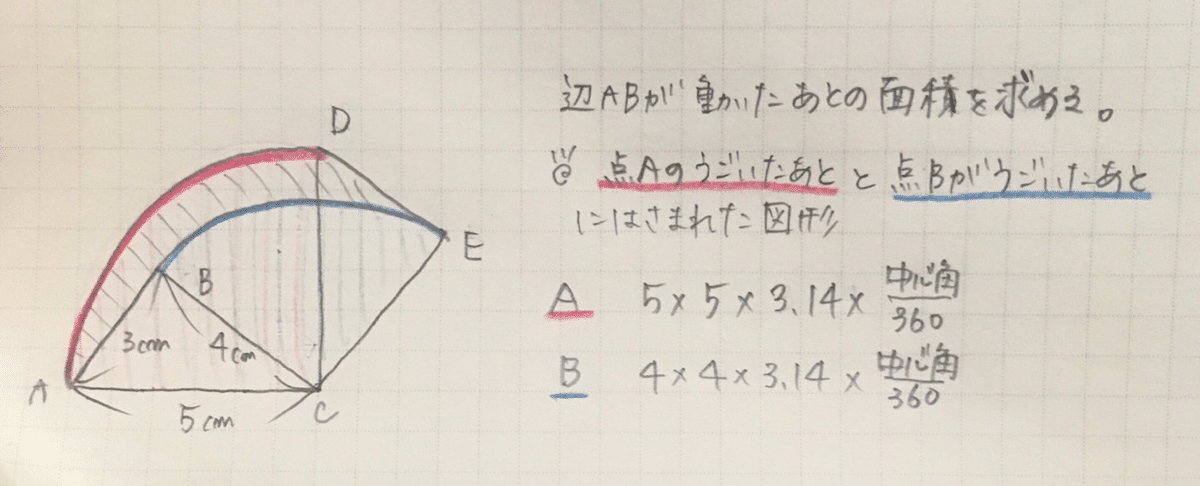 辺ABが動いたあとの面積を求める。
点Aのうごいたあとと点Bがうごいたあと
にはさまれた図形
A 5×5×3.14×中心角/360
B 4×4×3.14×中心角/360
D
E
B
3cm
4cm
A
C
5cm